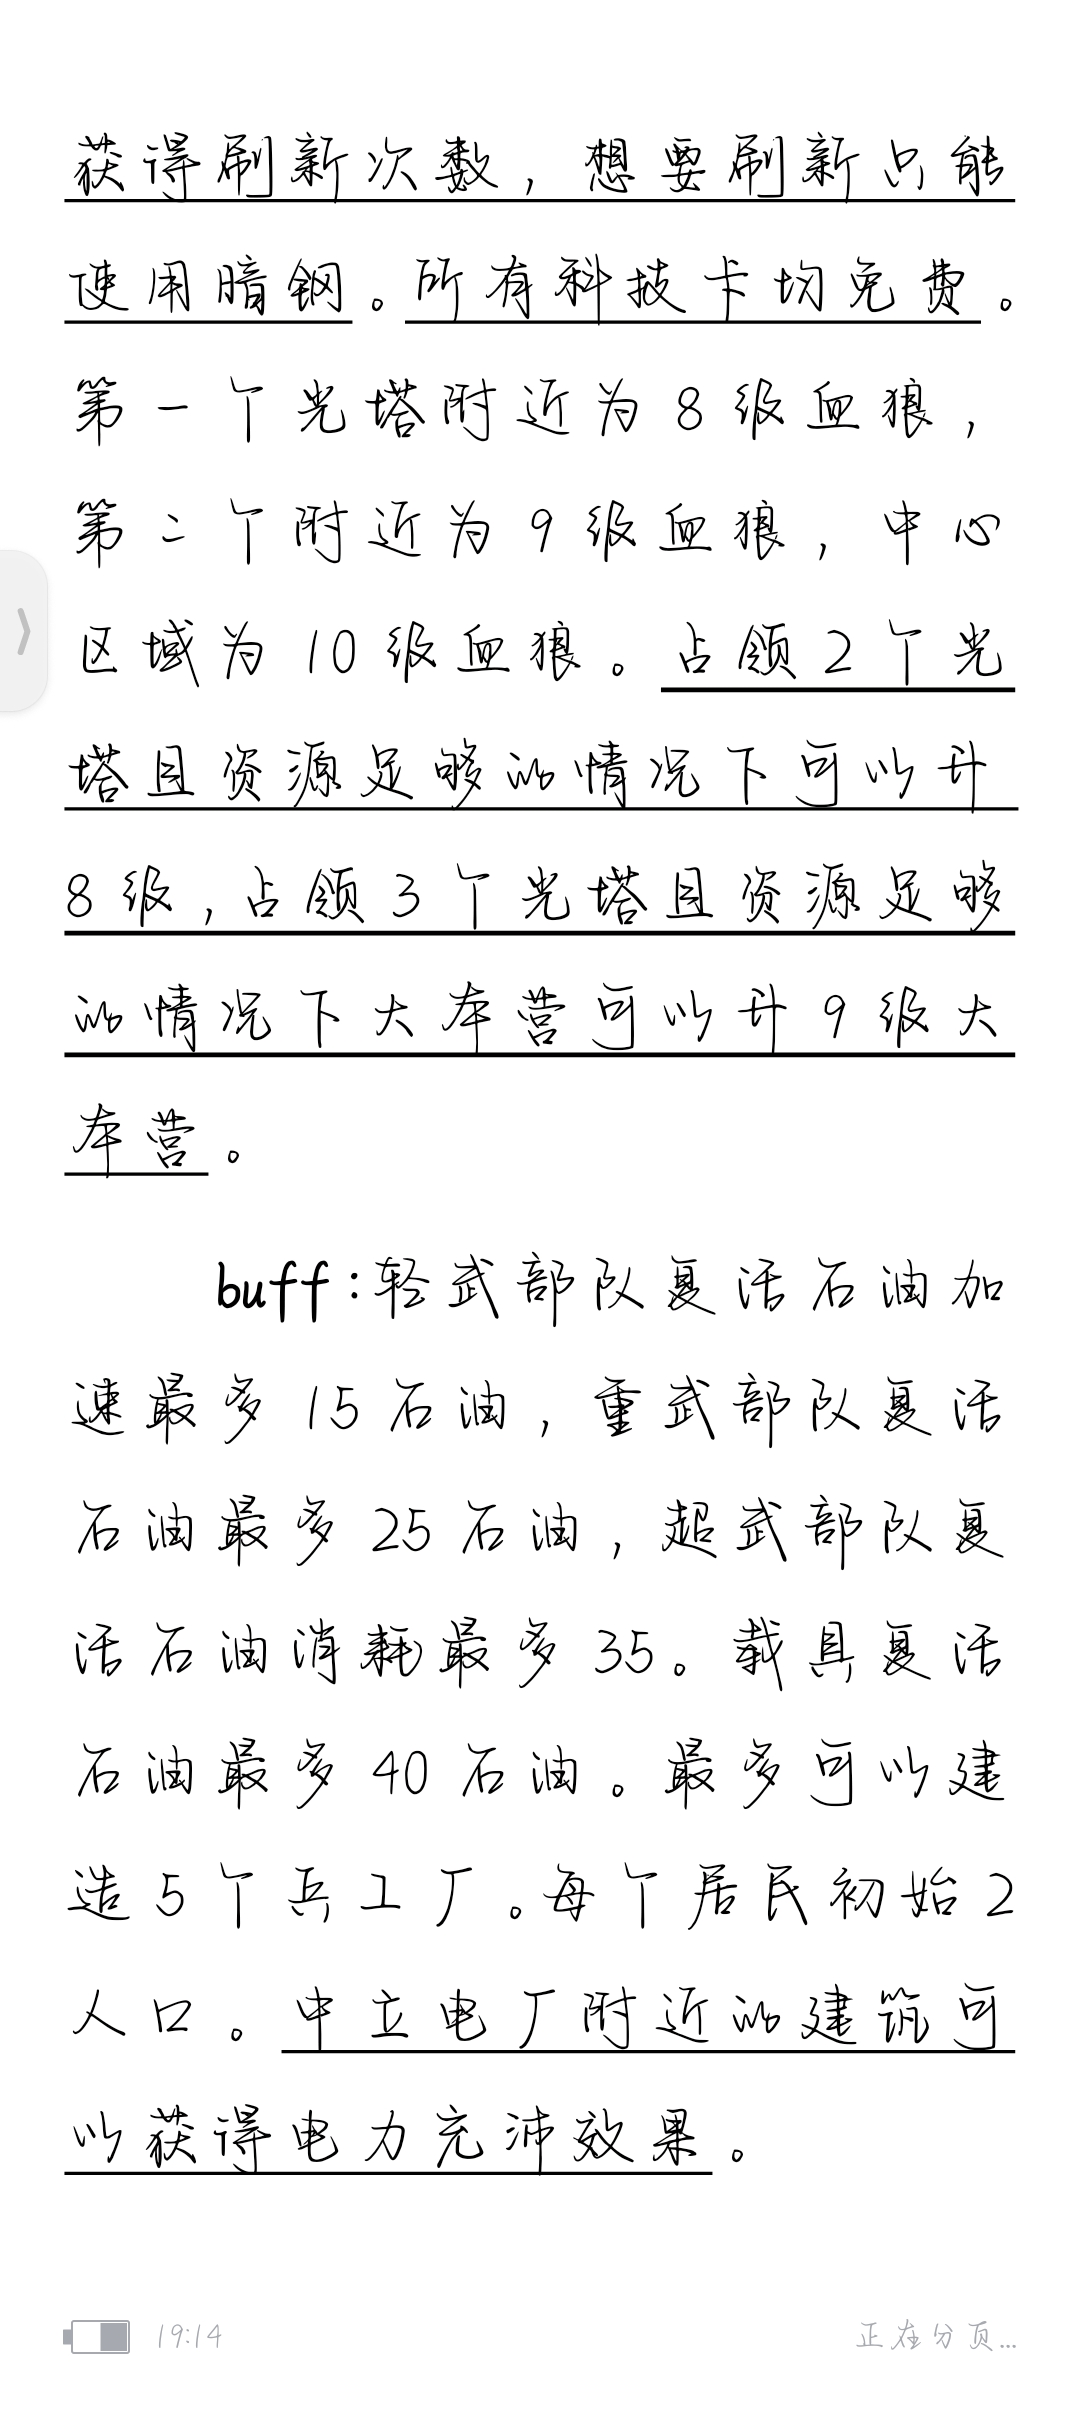 获得刷新次数，想要刷新只能
使用暗钢。所有科技卡均免费。
第一个光塔附近为8级血狼，
第二个附近为9级血狼，中心
区域为10级血狼。占领2个光
塔且资源足够的情况下可以升
8级，占领3个光塔且资源足够
的情况下大本营可以升9级大
本营。
buff：轻武部队复活石油加
速最多15石油，重武部队复活
石油最多25石油，超武部队复
活石油消耗最多35。载具复活
石油最多40石油。最多可以建
造5个兵工厂。每个居民初始2
人口。中立电厂附近的建筑可
以获得电力充沛效果。
19:14
正在分页…